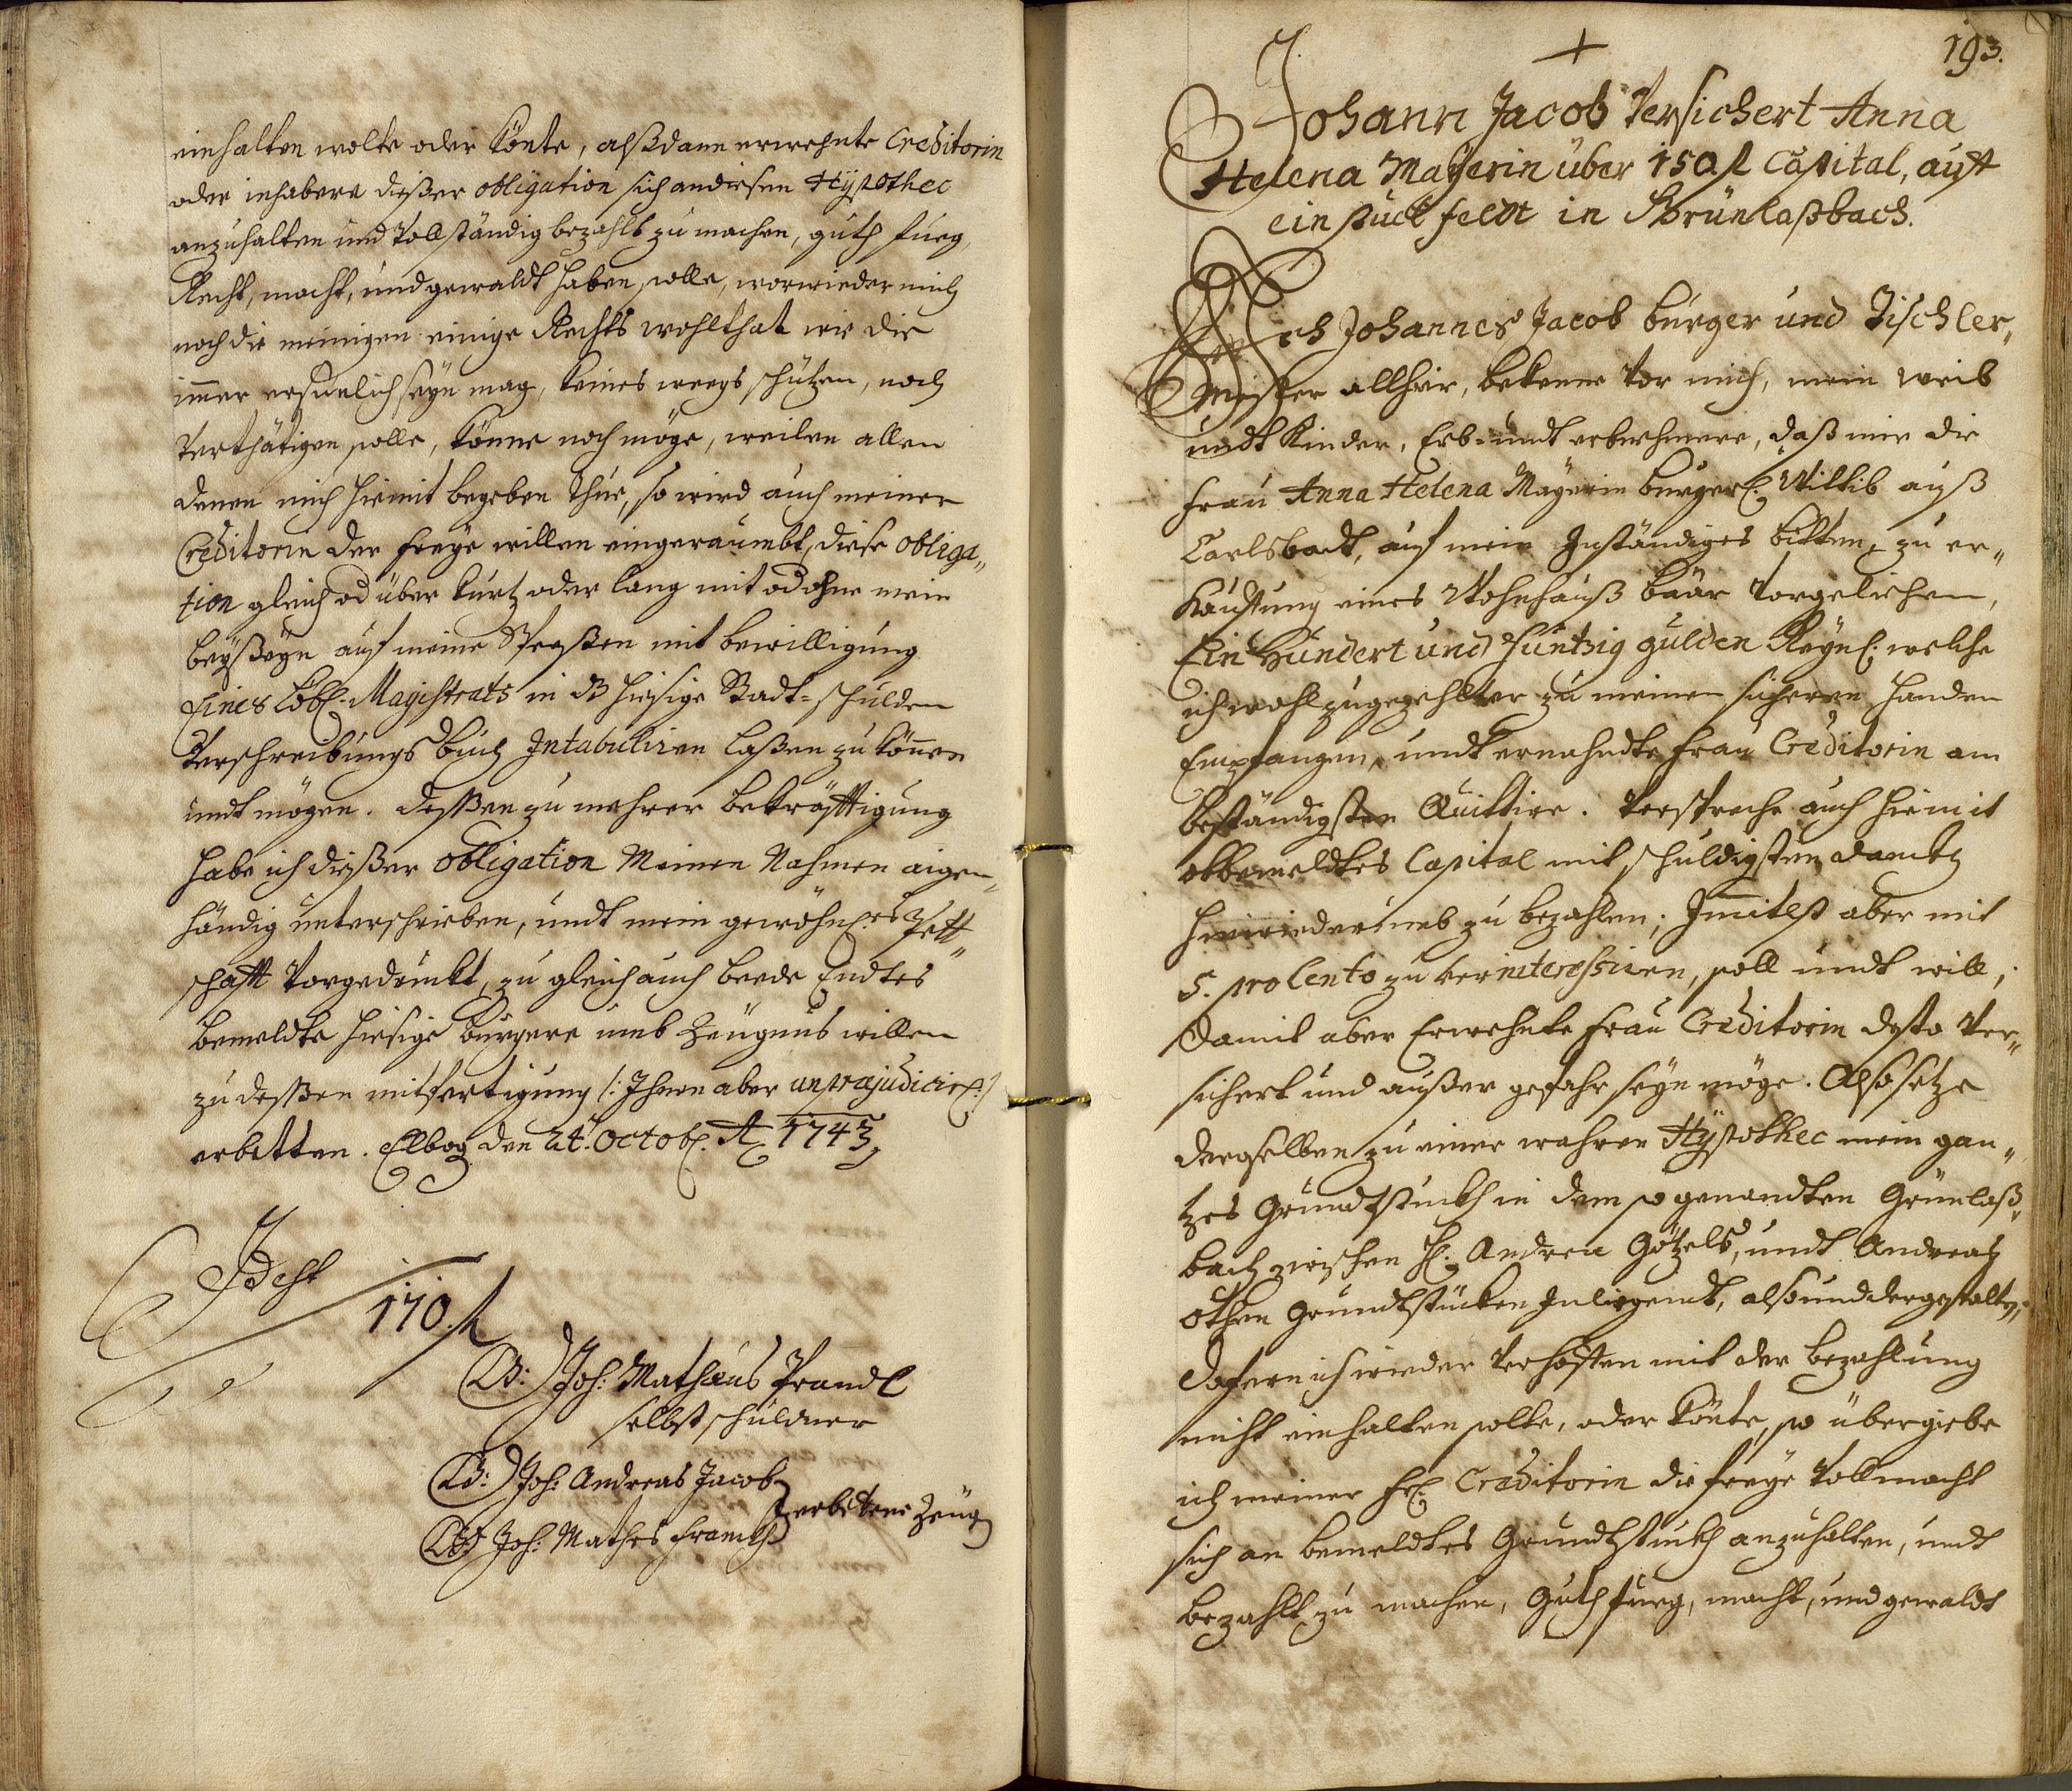 einhalten wolte oder könte, alßdann erwehnte Creditorin
oder inhabere dießer obligation sich an diesen Hÿpothec
anzuhalten und Vollständig bezahlt zu machen, guth fueg,
Recht, macht, und gewaldt haben solle, worwieder mich
noch die meinigen einige Rechts wohlthat wie die
im̄er ersinlich seÿn mag, keines weegs schützen, noch
Verthätigen solle, könne noch möge, weilen allen
denen mich hiemit begeben thue, so wird auch meiner
Creditorin der freÿe willen eingeraumbt, diese obliga„
tion gleich od über kurtz oder lang mit od ohne mein
beÿßeÿn auf meine Speßen mit bewilligung
Eines Löbl. Magistrats in dß hiesige Stadt=schulden
Verschreibungs buch Intabuliren laßen zu kön̄en
undt mögen. deßßen zu mehrer bekräfftigung
habe ich dießer obligation Meinen Nahmen aigen„
händig unterschrieben, undt mein gewöhnl.es Pett„
schafft Vorgedruckt, zu gleich auch beede Endtes
bemeldte hiesige burgere umb Zeugnus willen
zu deßßen mitfertigung /: Ihnen aber unpræjudicirl: /
erbetten. Elbog. den 24.t Octob. A 1743
Idest
170. fl
(LS:) Joh: Mathæus Prandl
selbst schuldner
(LS:) Joh: Andreas Jacob
erbetene Zeug
(LS) Joh: Mathes Franckh
193.
Johann Jacob Versichert Anna
Helena Maÿerin über 150 fl Capital, auff
ein stuck feldt in Grünlaßbach.
Ich Johannes Jacob burger und Tischler„
Meister allhier, bekenne vor mich, mein weib
undt Kinder, Erb- undt erbnehmere, daß mir die
Frau Anna Helena Maÿerin burgerl. Wittib auß
Carlsbadt, auf mein Inständiges bitten, zu er„
Kauffung eines Wohnhauß baar Vorgeliehen,
Ein Hundert und Funtzig gulden Reÿnl: welche
ich wohl zugezehlter zu meinen sicheren handen
Empfangen, undt ernahndte frau Creditorin am
beständigsten Quittire. Verspreche auch hiemit
obbemeldtes Capital mit schuldigsten danckh
hinwiederumb zu bezahlen; Im̄itlst aber mit
5. pro Cento zu verinteressiren, soll undt will;
damit aber Erwehnte frau Creditorin desto Ver„
sichert und außer gefahr seÿn möge. Also setze
derselben zu einer wahren Hÿpothec mein gan„
tzes Grundtstuckh in dem so genandten Grünlaß„
bach zwischen H: Andrea Götzels, undt Andreah
othen Grundtstücken Inliegendt, also und dergestalten,
dofern ich wieder Verhoffen mit der bezahlung
nicht einhalten solte, oder könte, so übergiebe
ich meiner Fr: Creditorin die freÿe Vollmacht
sich an bemeldtes Grundtstuckh anzuhalten, undt
bezahlt zu machen, Guth fueg, macht, und gewaldt